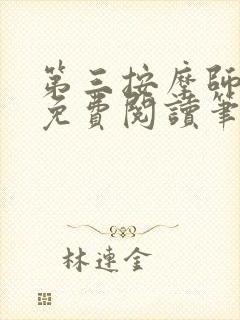 第三按摩師
免費閱讀筆
林連金